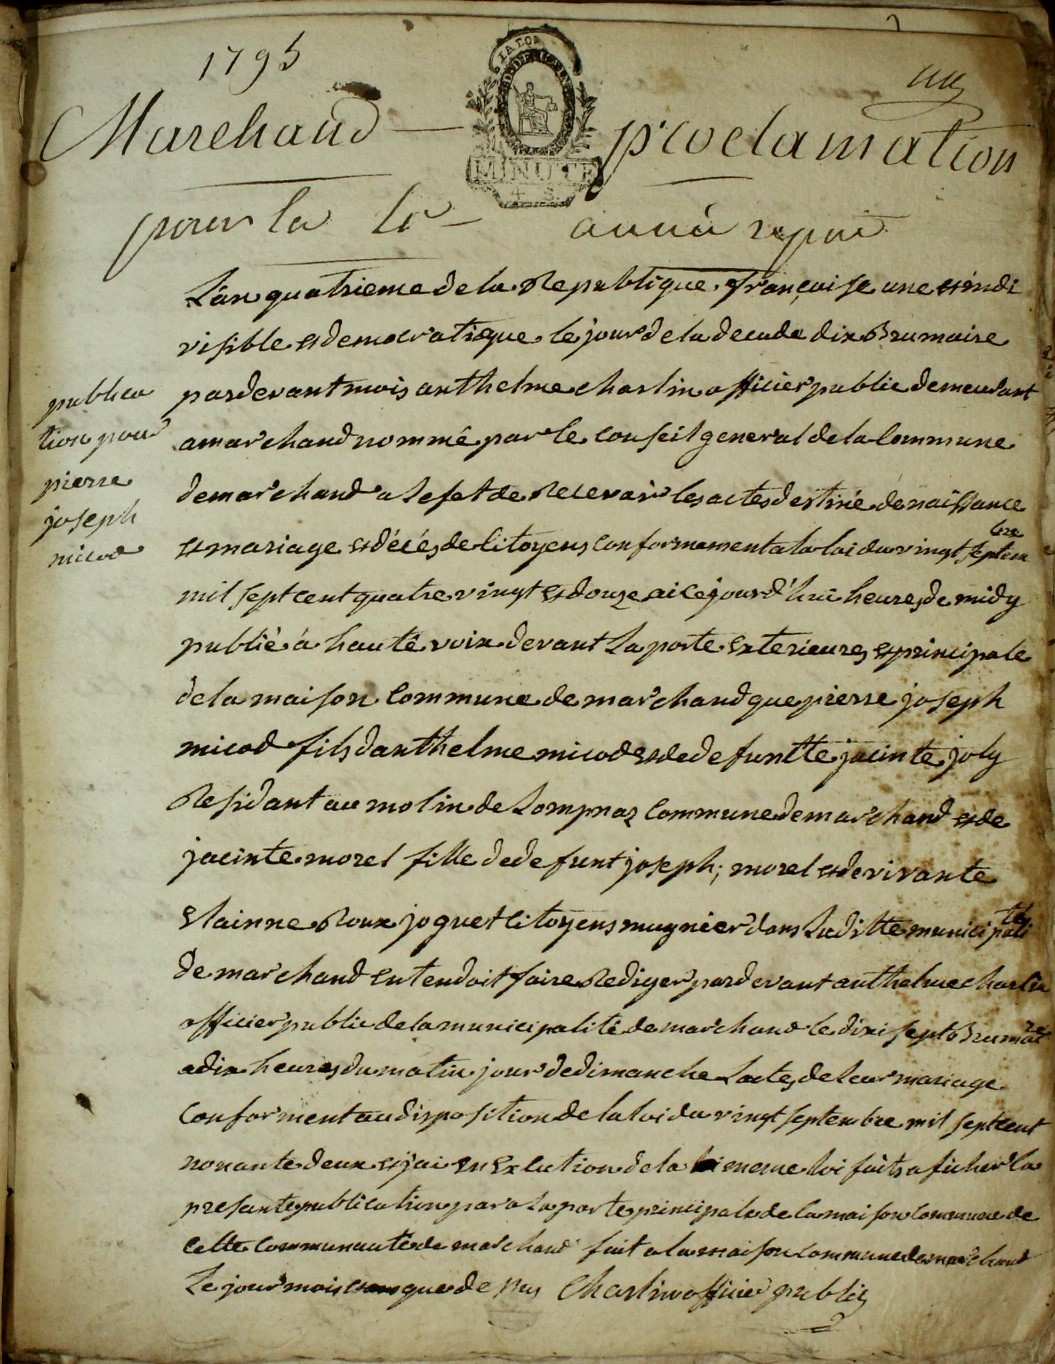 1795
Marchand proclamation
LA LOI
MINUTE
pour la 4e année repue
L'an quatrieme de la Republique françaisse une et indi
visible et democratique le jour de la decade dix Brumaire
pardevant mois anthelme charlin officier public demeurant
a marchand nommé par le conseil general de la Commune
de marchand a lefet de Recevoir les actes destiné de naissance
et mariage et décés de Citoyens conformement a la loi du vingt septem
bre
mil sept cent quatre vingt et douze ai cejourd'hui heures de midy
publié à hauté voix devant la porte exterieures et principale
de la maison Commune de marchand que pierre joseph
micod fils danthelme micod et de defuntte jacinte joly
Residant au molin de Lompnaz Commune de marchand et de
jacinte morel fille de defunt joseph morel et de vivante
Roux joguet Citoyens mugnier dans Laditte municipali
tés
de marchand entendoit faire Rediger pardevant anthelme charlin
officier public de la municipalité de marchand le dixi sept Brumai
re
a dix heures du matin jour de dimanche Lacte de leur mariage
Conforment au disposition de la loi du vingt septembre mil sept cent
nonante deux et j'ai en Excution de la meme loi faits aficher la
presante publication par a La porte principale de la maison commune de
Cette Communauté de marchand fait a la maison commune de marchand
Le jour mois que de sus Charlin officier public
publica
tion pour
pierre
joseph
micod